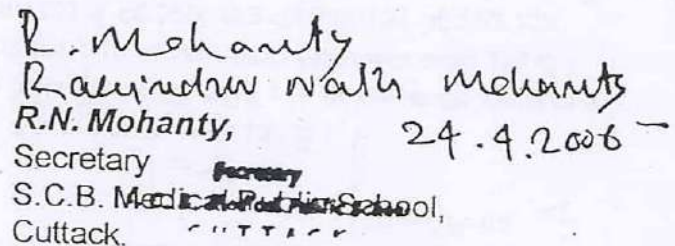 R. Mohanty
Ravindra Nath Mohanty
R.N. Mohanty, 24.4.2006
Secretary Secretary
S.C.B. Medical Public School,
Cuttack. CUTTACK